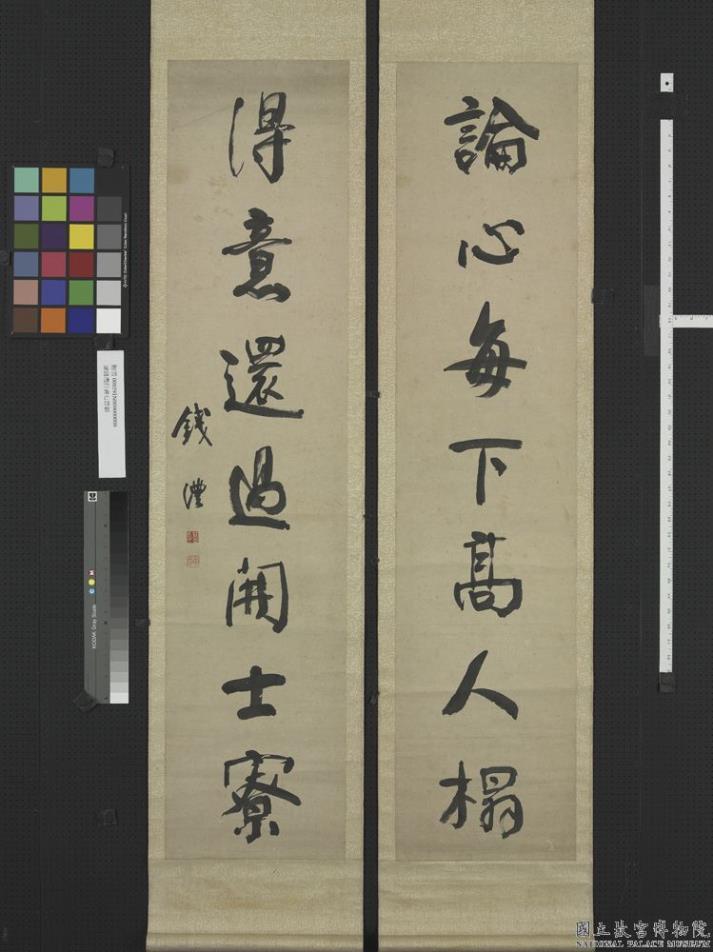 論心每下高人榻
得意還過開士寮
錢灃
國立故宮博物院
NATIONAL PALACE MUSEUM
KODAK Gray Scale